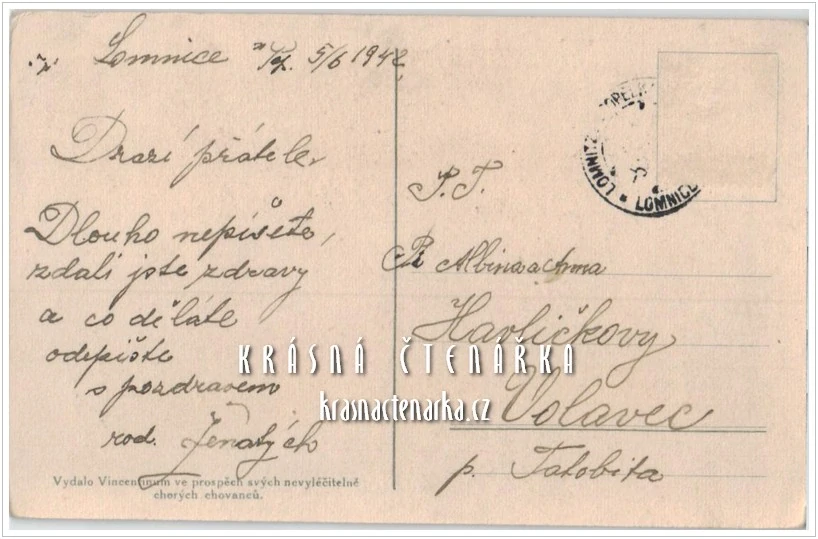 Lomnice n/Pop. 5/6 1942
Drazí přátelé,
Dlouho nepíšete,
zdali jste zdravy
a co děláte
odepište
s pozdravem
rod. Jenatých
Vydalo Vincentinum ve prospěch svých nevyléčitelně
chorých chovanců.
LOMNICE
P. T.
Albina a Anna
Havlíčkovy
Volavec
p. Tatobita
KRÁSNÁ ČTENÁŘKA
krasnactenarka.cz